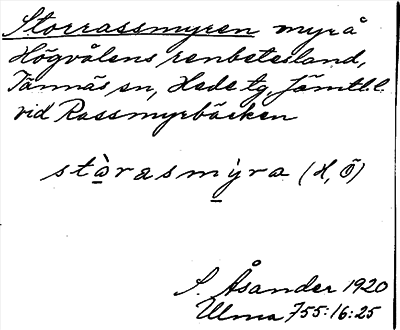 Storrassmyren myr å
Högvålens renbetesland,
Tännäs sn, Hede tg, Jämtl. l.
vid Rassmyrbäcken
stàrasmýra (H, Ö)
S. Åsander 1920
Ulma 755:16:25